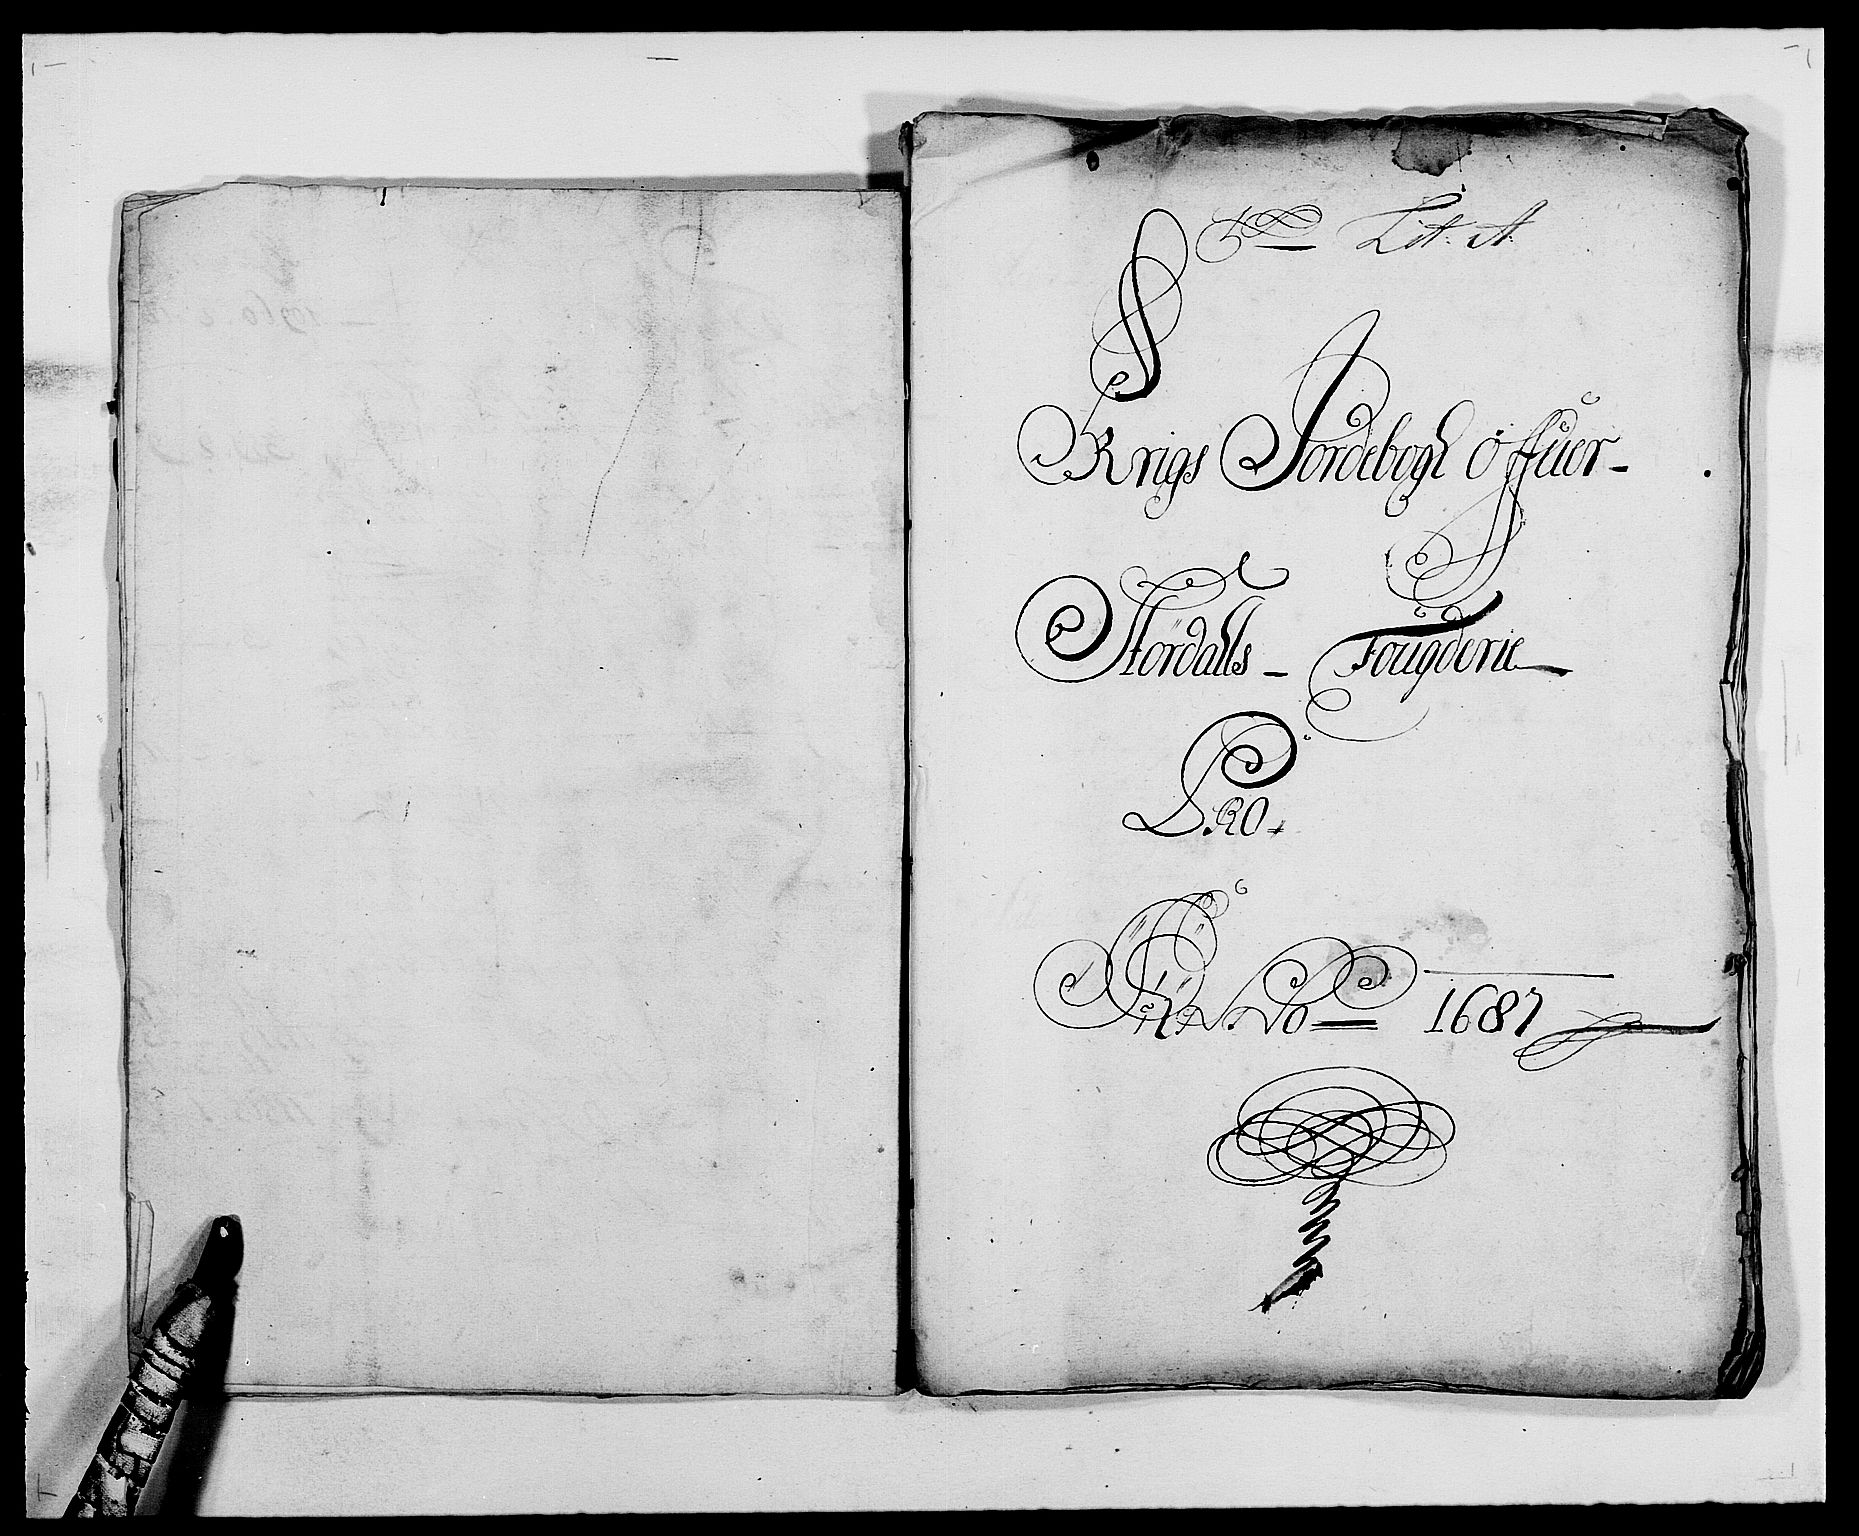 Lit. A
Krigs Jordebogh offuer-
Stördalls - Fougderie
PRO.
ANNO 1687